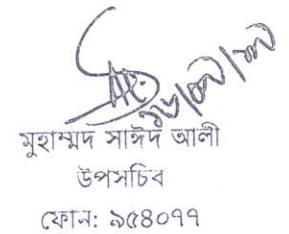 মুহাম্মদ সাঈদ আলী
উপসচিব
ফোন: ৯৫৪০৭৭